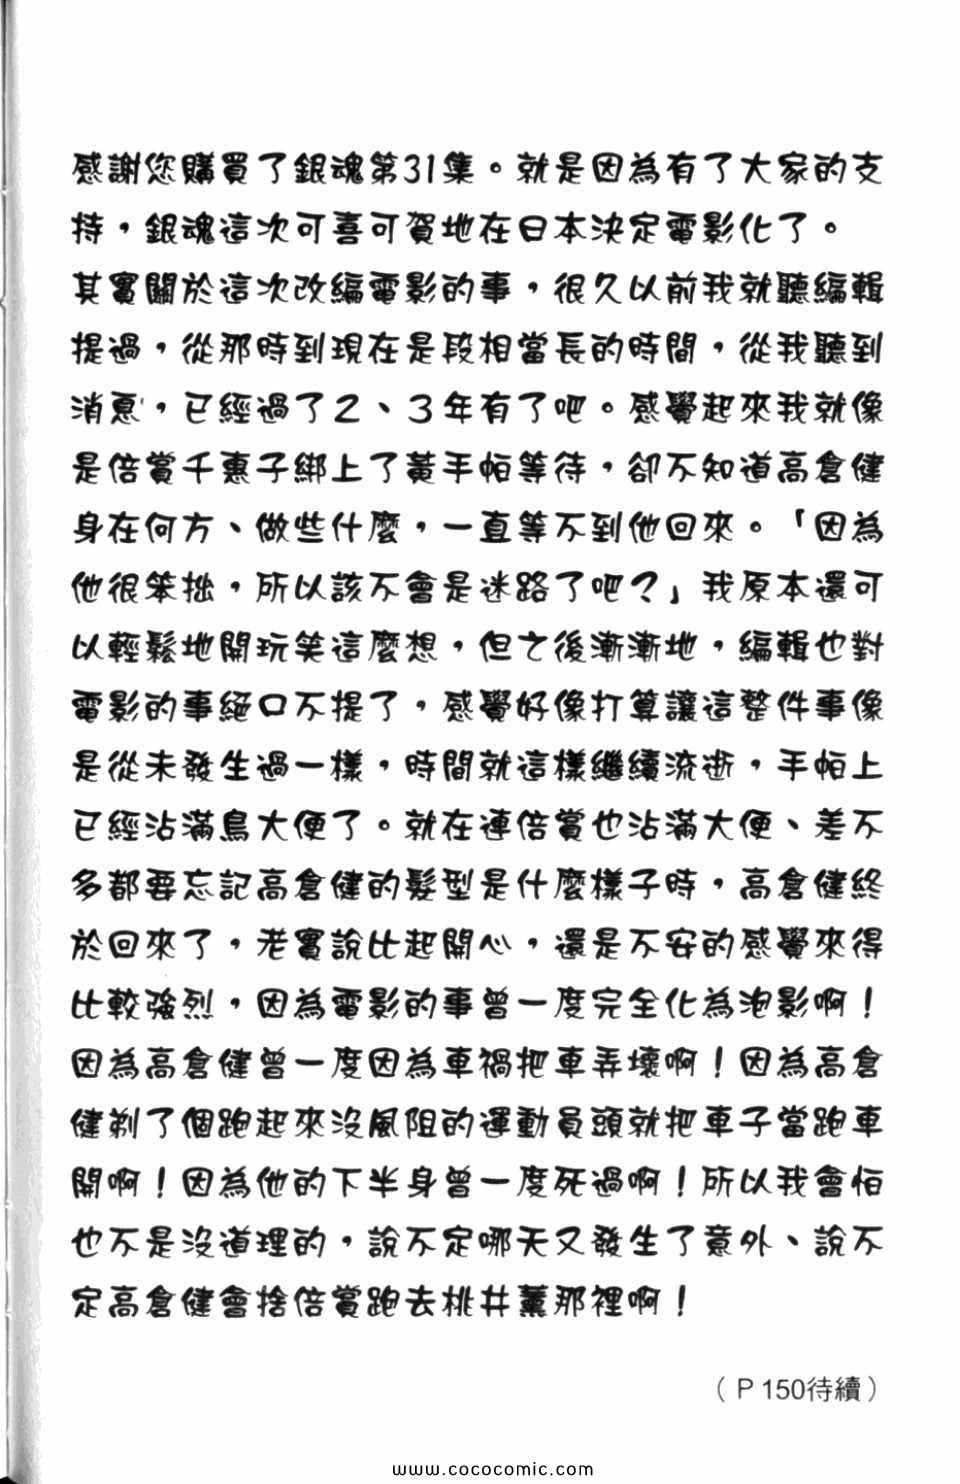 感謝您購買了銀魂第31集。就是因為有了大家的支
持，銀魂這次可喜可賀地在日本決定電影化了。
其實關於這次改編電影的事，很久以前我就聽編輯
提過，從那時到現在是段相當長的時間，從我聽到
消息，已經過了2、3年有了吧。感覺起來我就像
是倍賞千惠子綁上了黃手帕等待，卻不知道高倉健
身在何方、做些什麼，一直等不到他回來。「因為
他很笨拙，所以該不會是迷路了吧？」我原本還可
以輕鬆地開玩笑這麼想，但之後漸漸地，編輯也對
電影的事絕口不提了，感覺好像打算讓這整件事像
是從未發生過一樣，時間就這樣繼續流逝，手帕上
已經沾滿鳥大便了。就在連倍賞也沾滿大便、差不
多都要忘記高倉健的髮型是什麼樣子時，高倉健終
於回來了，老實說比起開心，還是不安的感覺來得
比較強烈，因為電影的事曾一度完全化為泡影啊！
因為高倉健曾一度因為車禍把車弄壞啊！因為高倉
健剃了個跑起來沒風阻的運動員頭就把車子當跑車
開啊！因為他的下半身曾一度死過啊！所以我會怕
也不是沒道理的，說不定哪天又發生了意外、說不
定高倉健會捨倍賞跑去桃井薰那裡啊！
（P150待續）
www.cococomic.com